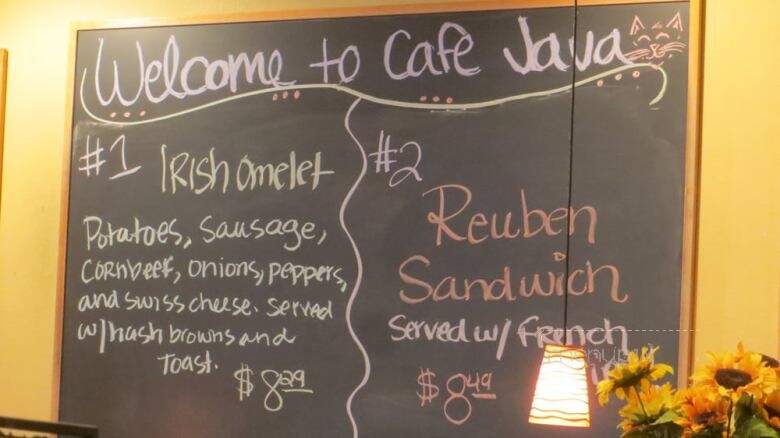 Welcome to Café Java
#1 Irish Omelet
Potatoes, Sausage,
Cornbeef, Onions, peppers,
and swiss cheese. Served
w/hash browns and
Toast.
$8.29
#2
Reuben
Sandwich
Served w/ French
$8.49